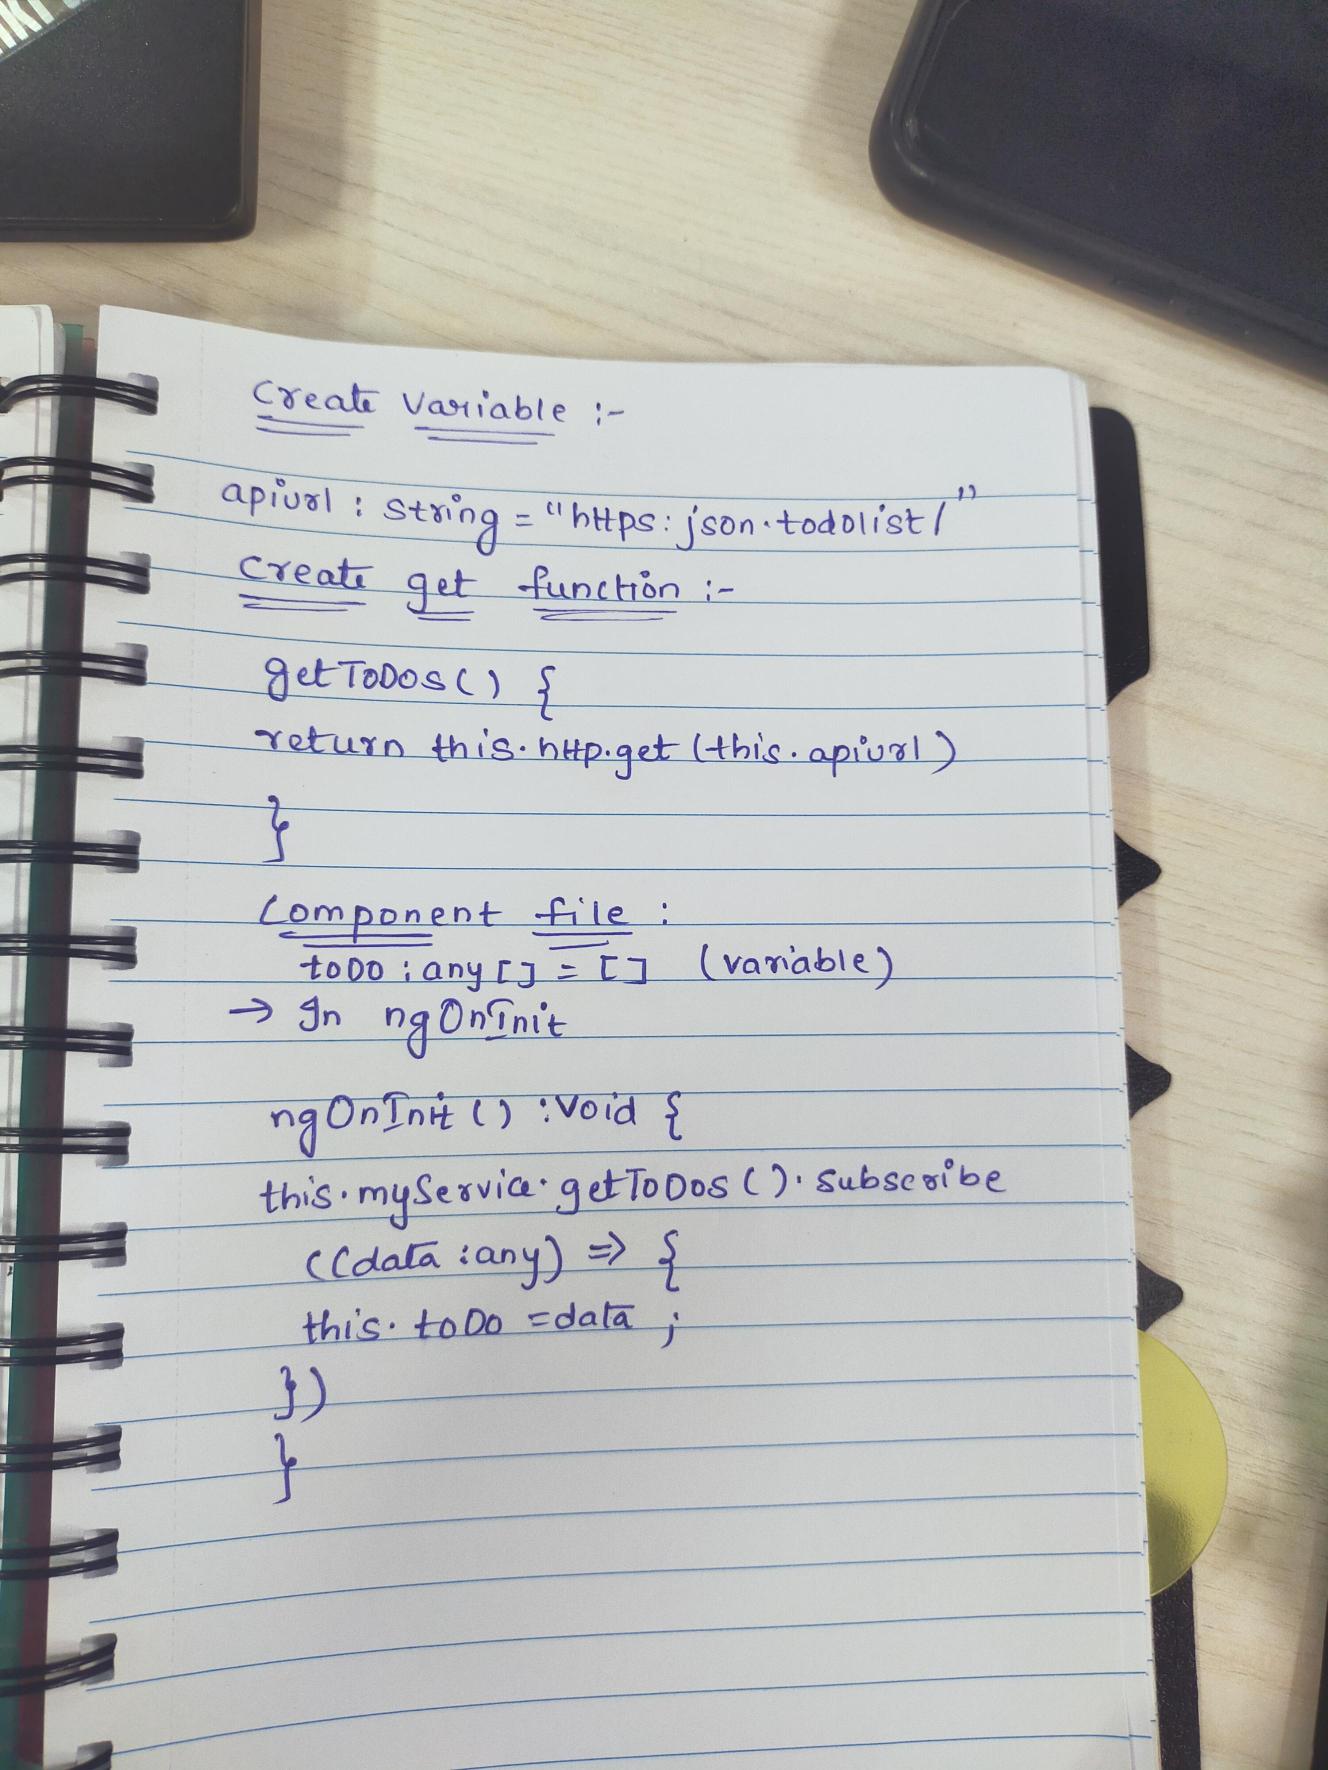 Create Variable :-
apiurl : string = "https: json.todolist/"
Create get function :-
getToDos() {
return this.http.get(this.apiurl)
}
Component file :
toDo : any[] = [] (variable)
→ In ngOnInit
ngOnInit() : void {
this.myService.getToDos().subscribe
((data : any) => {
this.toDo = data ;
})
}